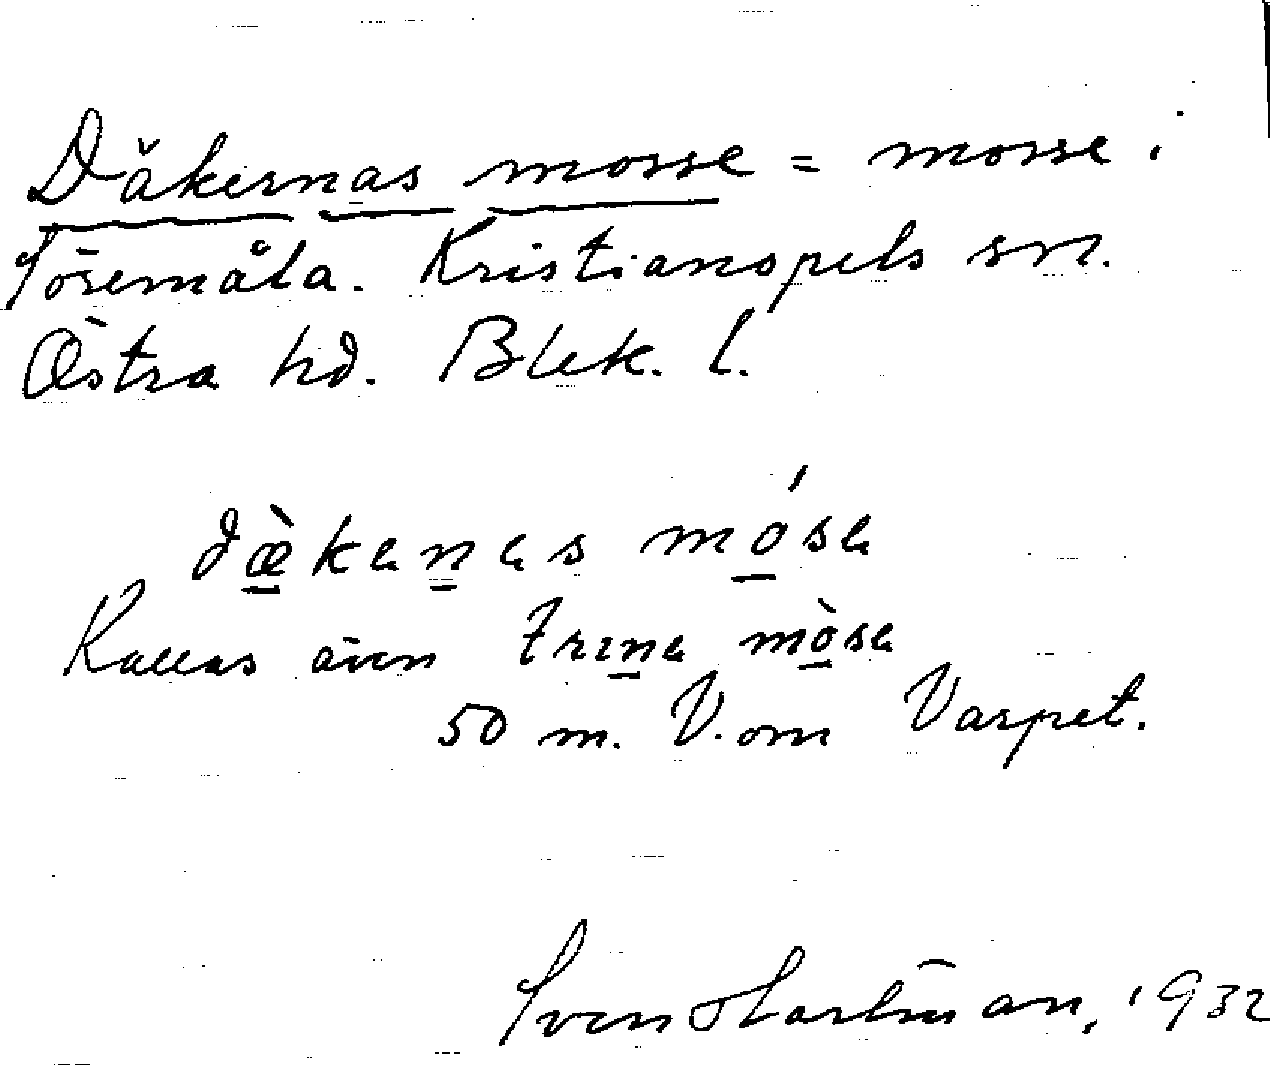 Däkernas mosse = mosse i
Tösemåla. Kristianopels sn.
Östra hd. Blek. l.
dæ̀kanas mósa
Kallas även trina mòsa
50 m. V. om Varpet.
Sven Hartman, 1932